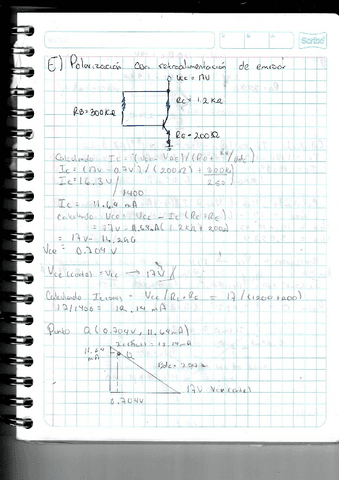 Scribe
E) Polarización con retroalimentación de emisor
Vcc = 17V
RC = 1.2 KΩ
RB = 300KΩ
RE = 200Ω
Calculando IC = (Vcc - VBE) / (RE + RB/βdc)
IC = (17V - 0.7V) / (200Ω) + 300K
IC = 16.3V / 1400
250
IC = 11.64 mA
Calculando VCE = Vcc - IC (RC + RE)
= 17V - 11.64mA (1.2KΩ + 200Ω)
= 17V - 16.296
VCE = 0.704V
VCE (corte) = Vcc → 17V
Calculando = Vcc / RC + RE = 17 / (1200 + 200)
17/1400 = 12.14 mA
Punto Q (0.704V, 11.64mA)
= 12.14mA
11.64 mA
Q
17V VCE (corte)
0.704V